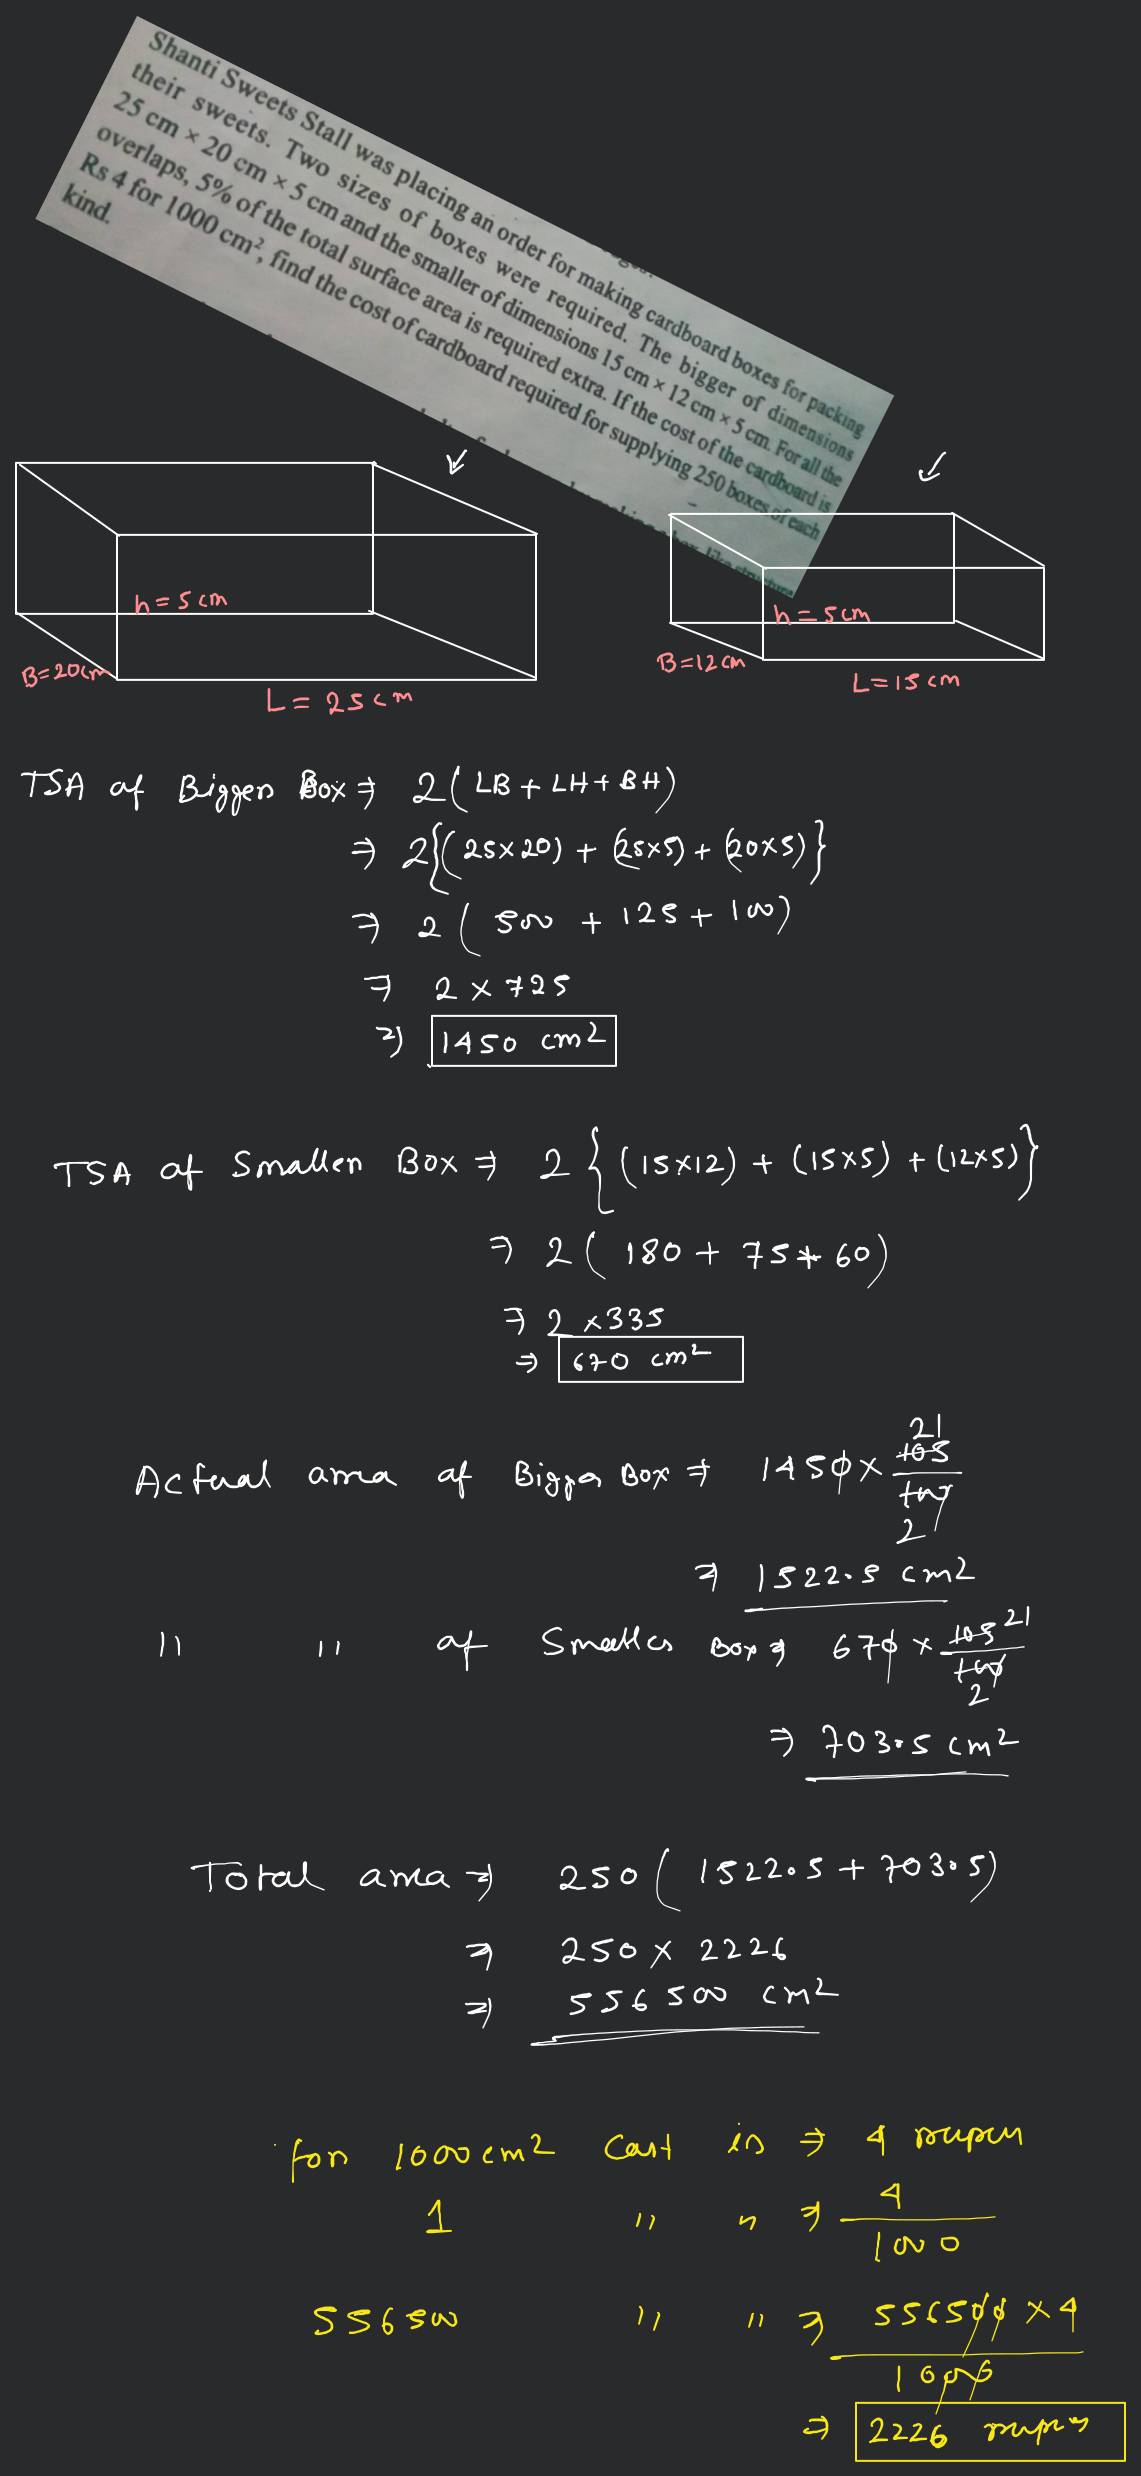 Shanti Sweets Stall was placing an order for making cardboard boxes for packing
their sweets. Two sizes of boxes were required. The bigger of dimensions
25 cm × 20 cm × 5 cm and the smaller of dimensions 15 cm × 12 cm × 5 cm. For all the
overlaps, 5% of the total surface area is required extra. If the cost of the cardboard is
Rs 4 for 1000 cm², find the cost of cardboard required for supplying 250 boxes of each
kind.
h = 5 cm
B=20cm
L = 25 cm
h = 5 cm
B=12 cm
L=15 cm
TSA of Bigger Box ⇒ 2(LB + LH + BH)
⇒ 2{(25×20) + (25×5) + (20×5)}
⇒ 2(500 + 125 + 100)
⇒ 2 × 725
⇒ 1450 cm2
TSA of Smaller Box ⇒ 2{(15×12) + (15×5) + (12×5)}
⇒ 2(180 + 75 + 60)
⇒ 2 ×335
⇒ 670 cm2
21
Actual area of Bigger Box ⇒ 1450 × 105/100
2
⇒ 1522.5 cm2
" " of Smaller Box ⇒ 670 × 105/100 21
2
⇒ 703.5 cm2
Total area ⇒ 250(1522.5 + 703.5)
⇒ 250 × 2226
⇒ 556500 cm2
for 1000 cm2 Cost is ⇒ 4 rupees
1 " " ⇒ 4/1000
556500 " " ⇒ 556500 × 4/1000
⇒ 2226 rupees